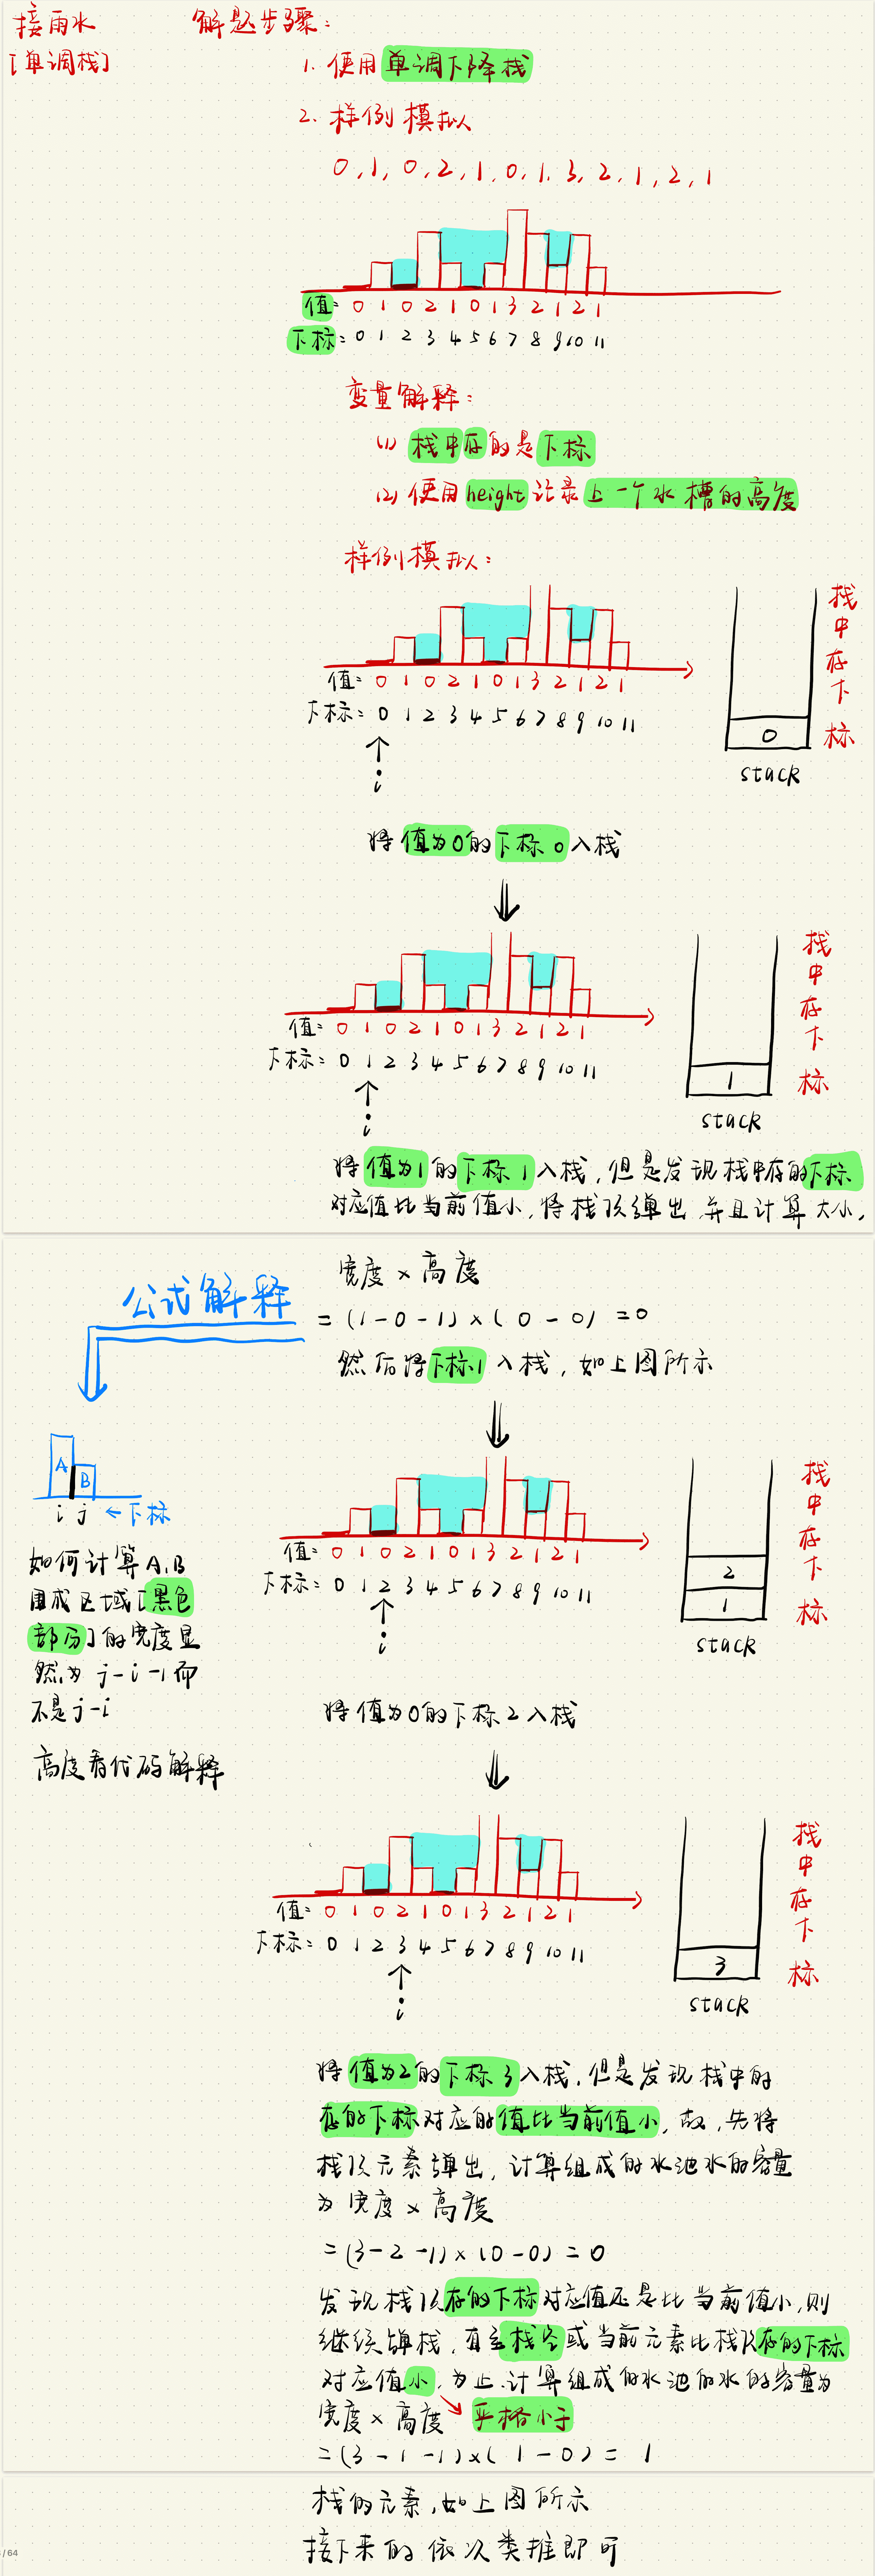 接雨水
[单调栈]
解题步骤:
1. 使用单调下降栈
2. 样例模拟
0,1,0,2,1,0,1,3,2,1,2,1
值: 0 1 0 2 1 0 1 3 2 1 2 1
下标: 0 1 2 3 4 5 6 7 8 9 10 11
变量解释:
(1) 栈中存的是下标
(2) 使用height记录上一个水槽的高度
样例模拟:
值: 0 1 0 2 1 0 1 3 2 1 2 1
下标: 0 1 2 3 4 5 6 7 8 9 10 11
i
0
stack
栈中存下标
将值为0的下标0入栈
值: 0 1 0 2 1 0 1 3 2 1 2 1
下标: 0 1 2 3 4 5 6 7 8 9 10 11
i
1
stack
栈中存下标
将值为1的下标1入栈,但是发现栈中存的下标
对应值比当前值小,将栈顶弹出,并且计算大小,
宽度×高度
=(1-0-1)×(0-0)=0
然后将下标1入栈,如上图所示
公式解释
A B
i j ←下标
如何计算A,B
围成区域[黑色
部分]的宽度显
然为 j-i-1而
不是j-i
高度看代码解释
值: 0 1 0 2 1 0 1 3 2 1 2 1
下标: 0 1 2 3 4 5 6 7 8 9 10 11
i
2
1
stack
栈中存下标
将值为0的下标2入栈
值: 0 1 0 2 1 0 1 3 2 1 2 1
下标: 0 1 2 3 4 5 6 7 8 9 10 11
i
3
stack
栈中存下标
将值为2的下标3入栈,但是发现栈中的
存的下标对应的值比当前值小,故,先将
栈顶元素弹出,计算组成的水池水的容量
为宽度×高度
=(3-2-1)×(0-0)=0
发现栈顶存的下标对应值还是比当前值小,则
继续弹栈,直至栈空或当前元素比栈顶存的下标
对应值小,为止.计算组成的水池的水的容量为
宽度×高度 严格小于
=(3-1-1)×(1-0)=1
栈的元素,如上图所示
接下来的依次类推即可
/ 64